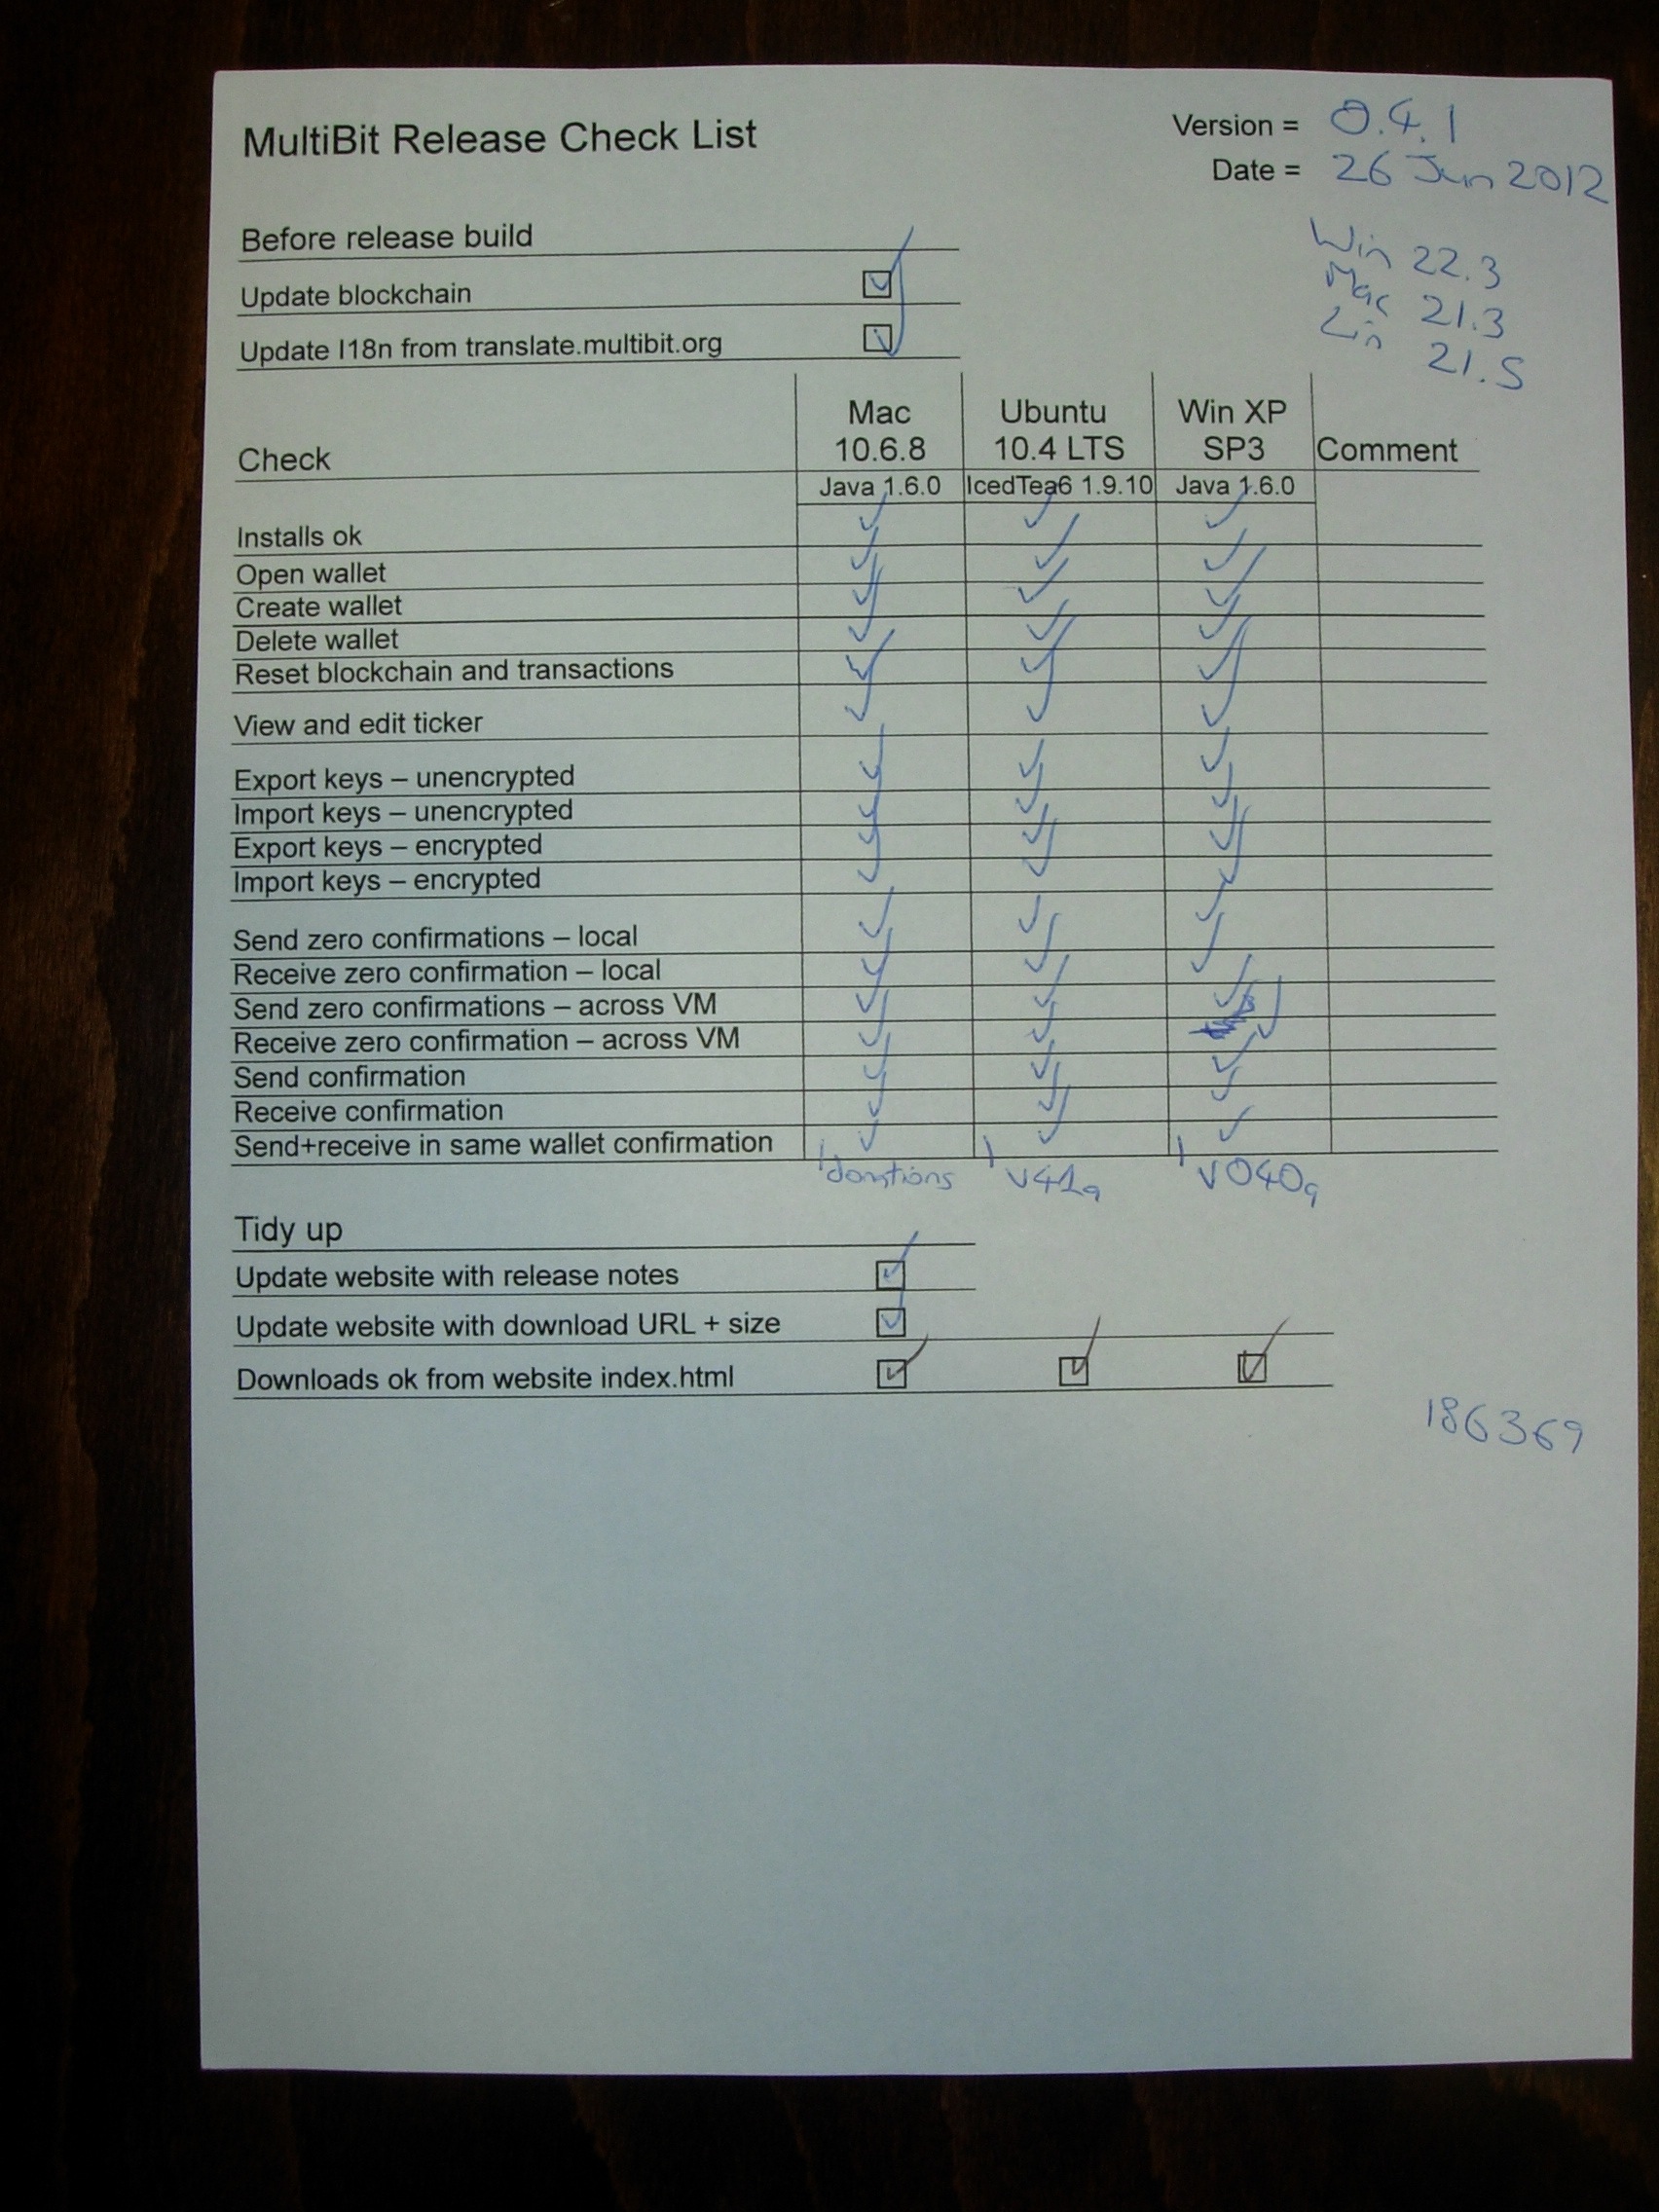 MultiBit Release Check List
Version = 0.4.1
Date = 26 Jun 2012
Win 22.3
Mac 21.3
Lin 21.5
Before release build
Update blockchain
Update I18n from translate.multibit.org
Check
Mac 10.6.8
Ubuntu 10.4 LTS
Win XP SP3
Comment
Java 1.6.0 IcedTea6 1.9.10 Java 1.6.0
Installs ok ✓ ✓ ✓
Open wallet ✓ ✓ ✓
Create wallet ✓ ✓ ✓
Delete wallet ✓ ✓ ✓
Reset blockchain and transactions ✓ ✓ ✓
View and edit ticker ✓ ✓ ✓
Export keys – unencrypted ✓ ✓ ✓
Import keys – unencrypted ✓ ✓ ✓
Export keys – encrypted ✓ ✓ ✓
Import keys – encrypted ✓ ✓ ✓
Send zero confirmations – local ✓ ✓ ✓
Receive zero confirmation – local ✓ ✓ ✓
Send zero confirmations – across VM ✓ ✓ ✓
Receive zero confirmation – across VM ✓ ✓ ✓
Send confirmation ✓ ✓ ✓
Receive confirmation ✓ ✓ ✓
Send+receive in same wallet confirmation ✓ ✓ ✓
donations v41a v040a
Tidy up
Update website with release notes
Update website with download URL + size
Downloads ok from website index.html
186369